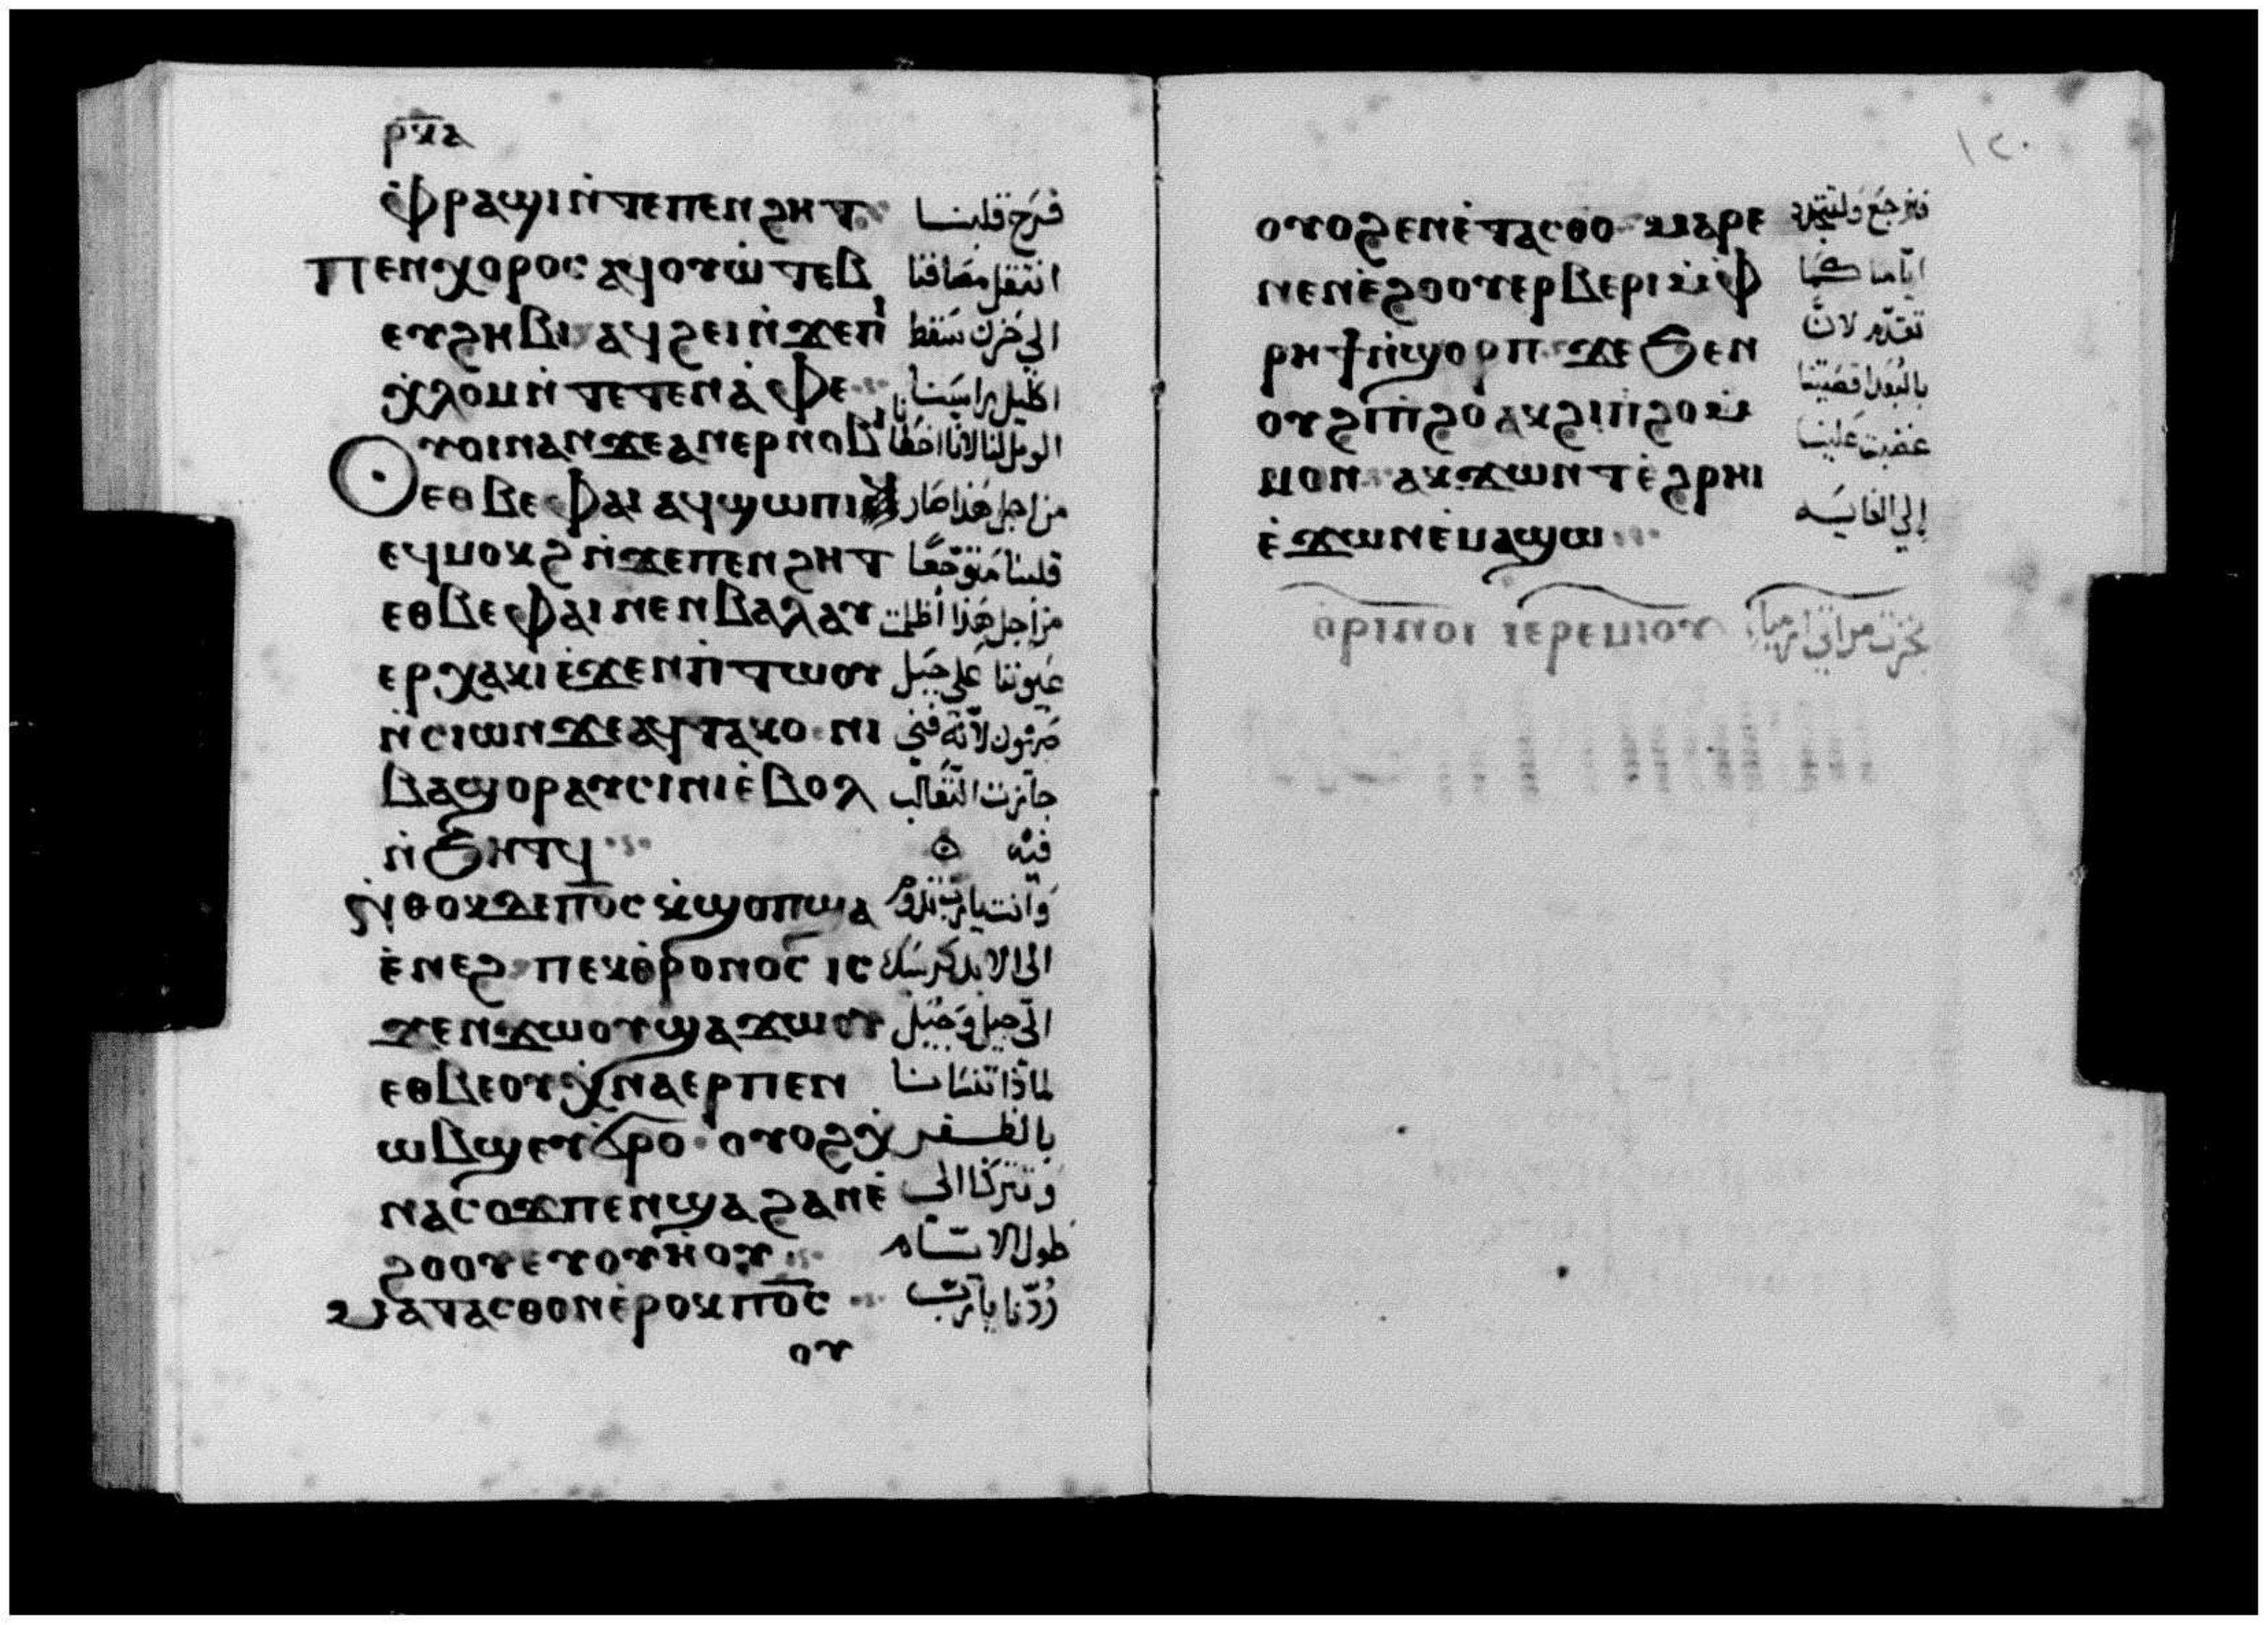 ⲣⲕⲁ
ⲙ̀ⲫⲣⲁϣⲓⲛ̀ⲧⲉⲡⲉⲛϩⲏⲧ فرح قلبنا
ⲡⲉⲛⲭⲟⲣⲟⲥ ⲁϥⲟⲩⲱ̀ⲧⲉⲃ انتقل مصافنا
ⲉⲩϩⲏⲃⲓ ⲁϥϩⲉⲓⲛ̀ϫⲉⲡⲓ̀ الي حزن سقط
ⲭ̀ⲗⲟⲙⲛ̀ⲧⲉⲧⲉⲛⲁ̀ⲫⲉ اكليل راسنا
ⲟⲩⲟⲓⲛⲁⲛϫⲉⲁⲛⲉⲣⲛⲟⲃⲓ الويل لنا لاننا اخطانا
ⲉⲑⲃⲉⲫⲁⲓ ⲁϥϣⲱⲡⲓ من اجل هذا صار
ⲉϥⲙⲟⲕϩⲛ̀ϫⲉⲡⲉⲛϩⲏⲧ قلبنا متوجعًا
ⲉⲑⲃⲉⲫⲁⲓⲛⲉⲛⲃⲁⲗⲁⲩ من اجل هذا اظلمت
ⲉⲣⲭⲁⲕⲓⲉ̀ϫⲉⲛⲡⲓⲧⲱⲟⲩ عيوننا علي جبل
ⲛ̀ⲥⲓⲱⲛϫⲉⲁϥⲧⲁⲕⲟ ⲛⲓ صهيون لانه فني
ⲃⲁϣⲟⲣⲁⲩⲥⲓⲛⲓⲉ̀ⲃⲟⲗ جازت الثعالب
ⲛ̀ϧⲏⲧϥ فيه
ⲛ̀ⲑⲟⲕⲇⲉⲡⲟ̅ⲥ̅ⲕ̀ϣⲟⲡϣⲁ وانت يارب تدوم
ⲉ̀ⲛⲉϩ ⲡⲉⲕⲑ̀ⲣⲟⲛⲟⲥ ⲓⲥ الي الابد كرسيك
ϫⲉⲛϫⲱⲟⲩϣⲁϫⲱⲟⲩ الي جيل وجيل
ⲉⲑⲃⲉⲟⲩⲭ̀ⲛⲁⲉⲣⲡⲉⲛ لماذا تنسانا
ⲱⲃϣⲉⲩϭⲣⲟ ⲟⲩⲟϩⲭ̀ بالظفر
ⲛⲁⲥⲟϫⲡⲉⲛϣⲁϩⲁⲛⲉ̀ وتتركنا الي
ϩⲟⲟⲩⲉⲩⲟⲩⲏ̀ⲟⲩ طول الايام
ⲙⲁⲧⲁⲥⲑⲟⲛⲉ̀ⲣⲟⲕⲡⲟ̅ⲥ̅ ردنا يارب
ⲟⲩ
١٢٠
ⲟⲩⲟϩⲉⲛⲉ̀ⲧⲁⲥⲑⲟ ⲙⲁⲣⲉ فنرجع ولتتجدد
ⲛⲉⲛⲉ̀ϩⲟⲟⲩⲉⲣⲃⲉⲣⲓⲙ̀ⲫ ايامنا كما
ⲣⲏϯⲛ̀ϣⲟⲣⲡ ϫⲉϧⲉⲛ تقدم لان
ⲟⲩϩⲓⲡ̀ϩⲟⲁⲕϩⲓⲡ̀ϩⲟⲙ̀ بالبعد اقصيتنا
ⲙⲟⲛ ⲁⲕϫⲱⲛⲧⲉ̀ϩⲣⲏⲓ غضبت علينا
ⲉ̀ϫⲱⲛⲉ̀ⲙⲁϣⲱ إلي الغايه
ⲑⲣⲓⲛⲟⲓ ⲓⲉⲣⲉⲙⲓⲟⲩ نجزت مراثي ارميا